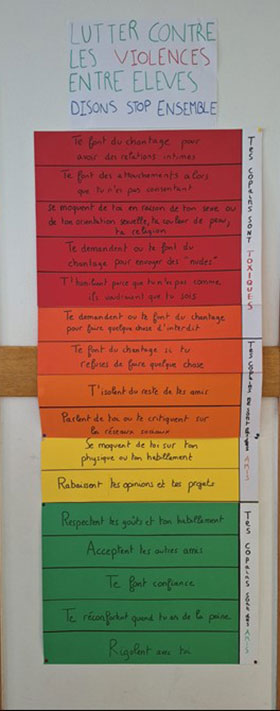 LUTTER CONTRE
LES VIOLENCES
ENTRE ELEVES
DISONS STOP ENSEMBLE
Te font du chantage pour
avoir des relations intimes
Te font des attouchements alors
que tu n'es pas consentant
Se moquent de toi en raison de ton sexe ou
de ton orientation sexuelle, ta couleur de peau,
ta religion
Te demandent ou te font du
chantage pour envoyer des "nudes"
parce que tu n'es pas comme
ils voudraient que tu sois
Te demandent ou te font du chantage
pour faire quelque chose d'interdit
Te font du chantage si tu
refuses de faire quelque chose
T'isolent du reste de tes amis
Parlent de toi ou te critiquent sur
les réseaux sociaux
Se moquent de toi sur ton
physique ou ton habillement
Rabaissent tes opinions et tes projets
Respectent tes goûts et ton habillement
Acceptent tes autres amis
Te font confiance
Te réconfortent quand tu as de la peine
Rigolent avec toi
TES COPAINS SONT TOXIQUES
TES COPAINS AMIS
TES COPAINS SONT DES AMIS